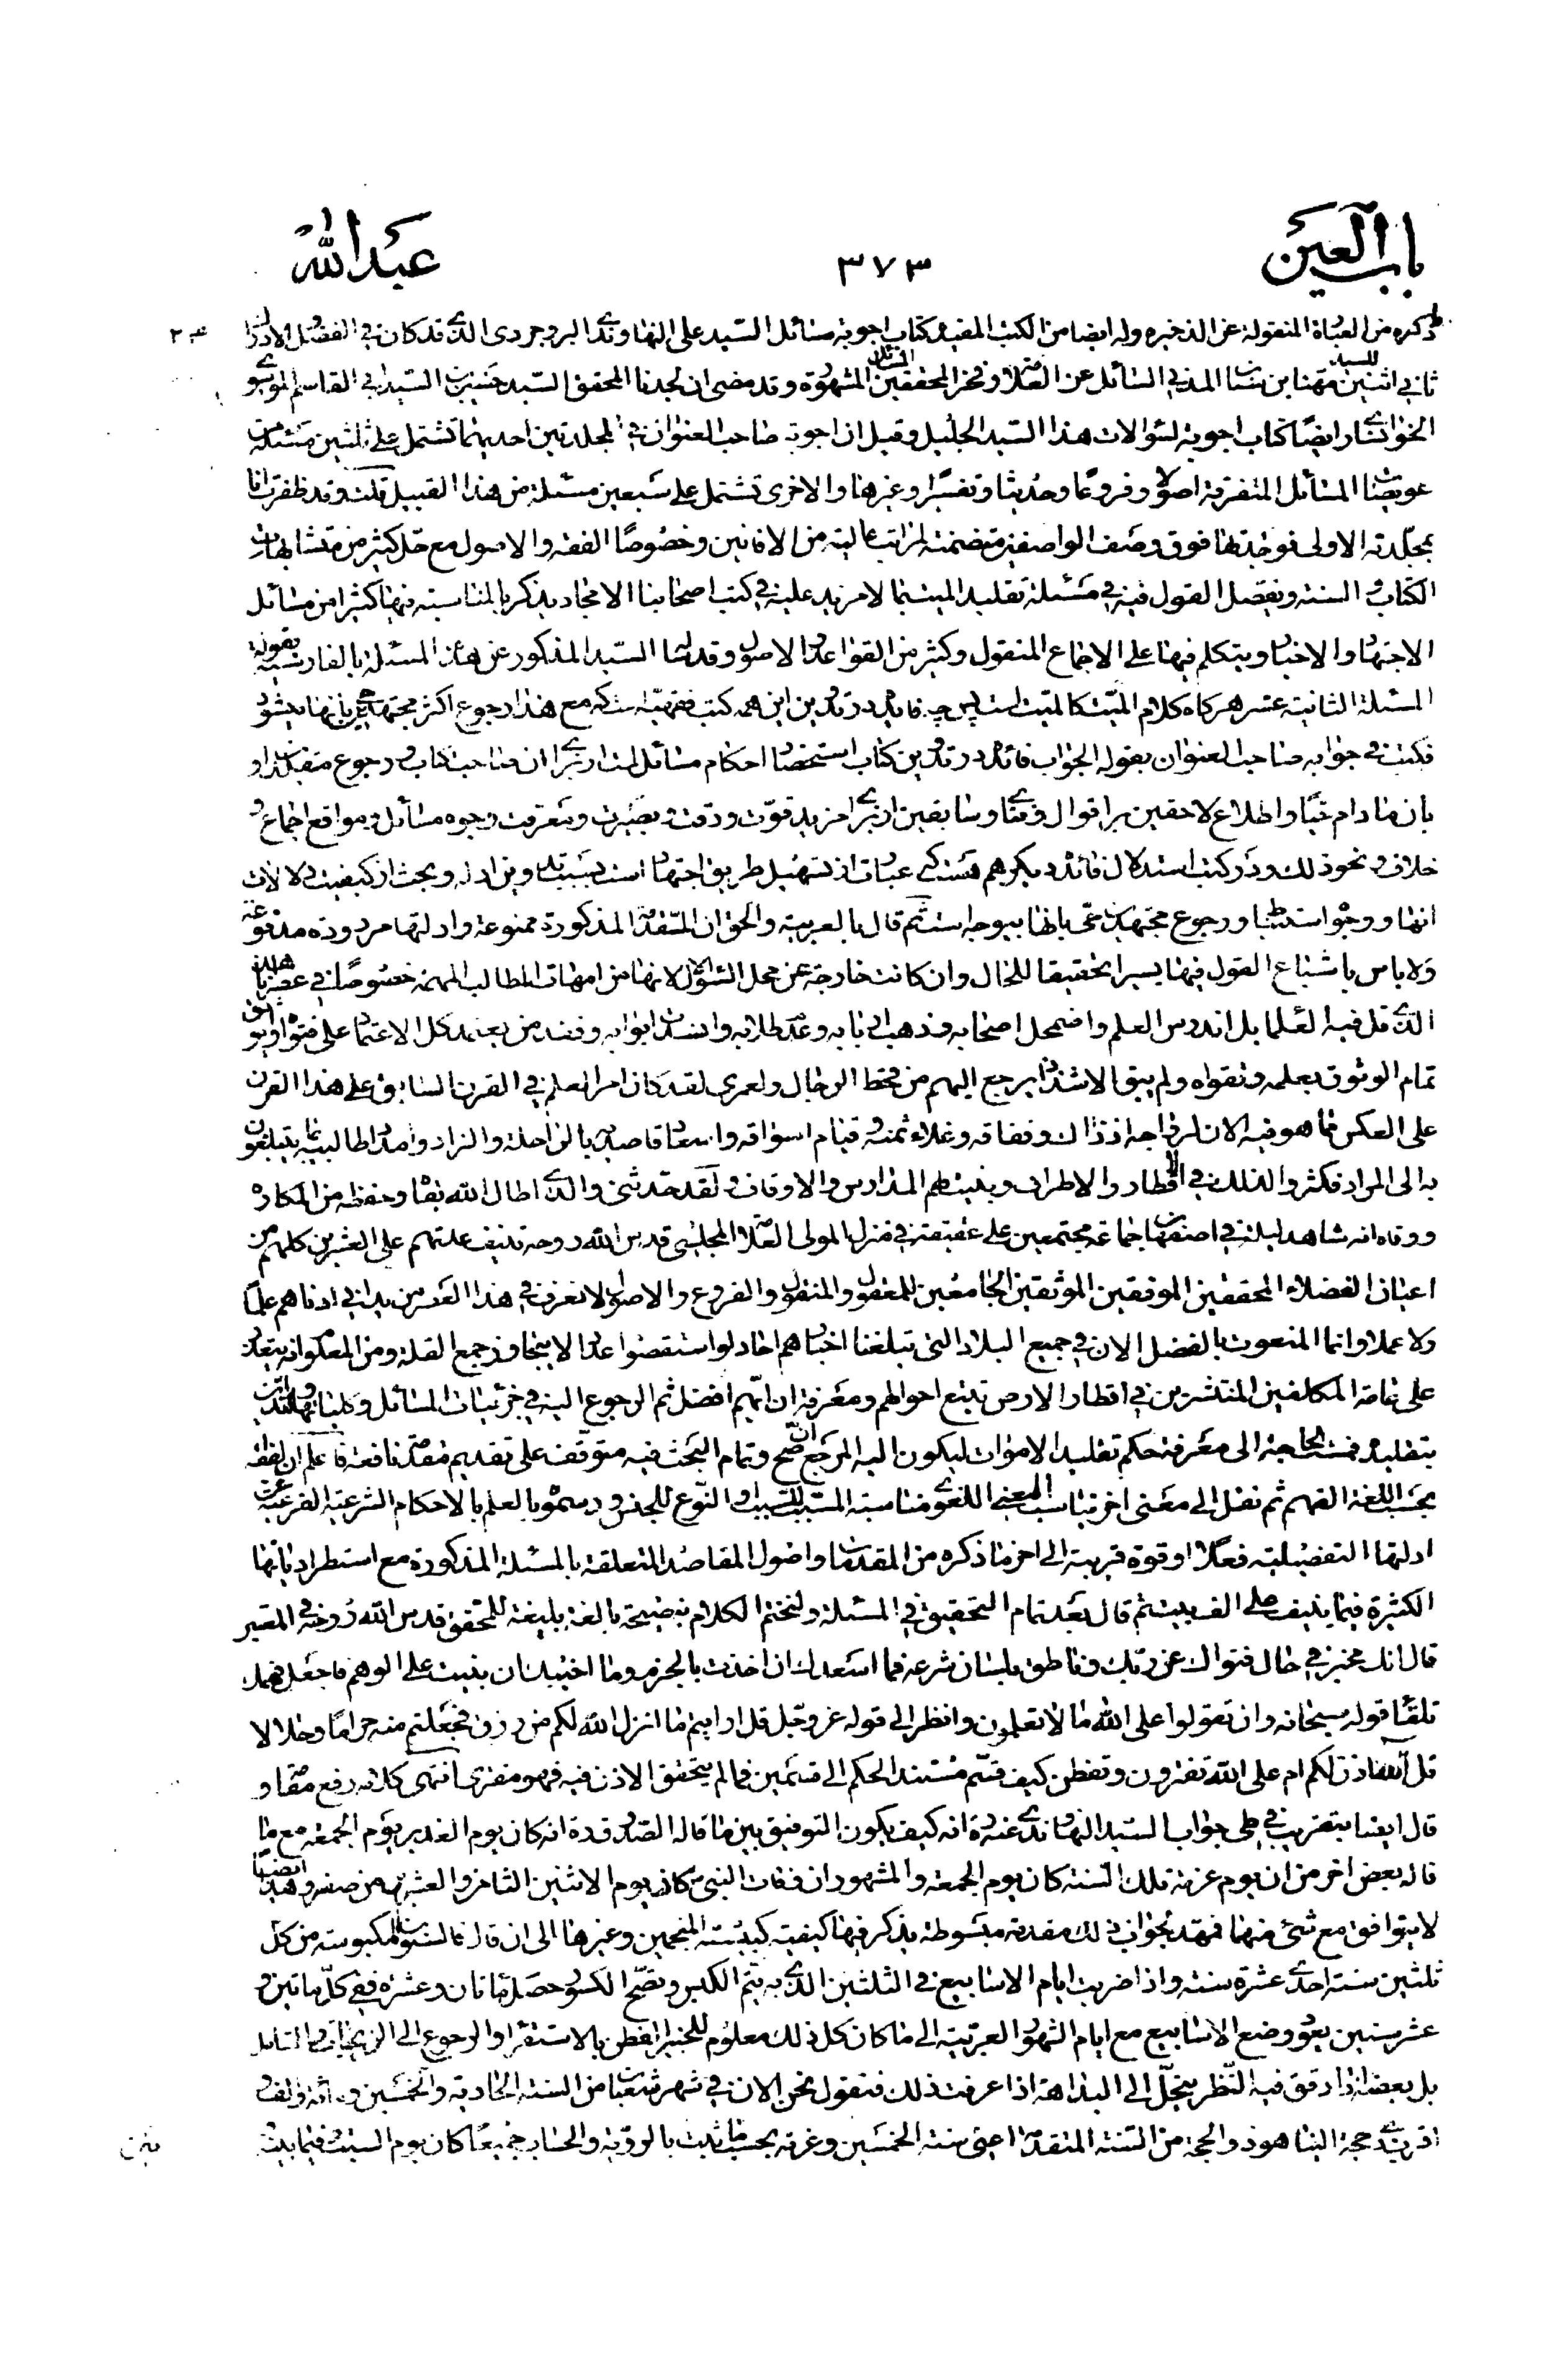 باب العين
٣٧٣
عبد الله
ذكره من العبارة المنقولة عن الذخيرة وله ايضا من الكتب المفيد كتاب اجوبة مسائل السيد على النهاوندى البروجردى الذى قد كان فى الفضل والادراك
ثانى اثنين للسيد مهنا بن سنان المدنى السائل عن العلامة وفخر المحققين المسائل المشهورة وقد مضى ان لجدنا المحقق السيد حسين بن السيد ابى القاسم الموسوى
الخوانسارى ايضًا كتاب اجوبة لسؤالات هذا السيد الجليل وقيل ان اجوبة صاحب العنوان فى مجلدتين احديهما تشتمل على ثلثين مسئلة من
عويصات المسائل المتفرقة اصولا وفروعًا وحديثا وتفسيرا وغيرها والاخرى تشتمل على سبعين مسئلة من هذا القبيل قلت وقد ظفرت انا
بمجلدته الاولى فوجدتها فوق وصف الواصفين متضمنة لمراتب عالية من الافانين وخصوصًا الفقه والاصول مع حل كثير من متشابهات
الكتاب والسنة ويفصل القول فيه فى مسئلة تقليد الميت بما لا مزيد عليه فى كتب اصحابنا الامجاد يذكر بالمناسبة فيها كثيرا من مسائل
الاجتهاد والاخبار ويتكلم فيها على الاجماع المنقول وكثير من القواعد الاصول وقد سئله السيد المذكور عن هذه المسئلة بالفارسية بقوله
المسئلة الثانية عشر هركاه كلام الميت كالميت است پس چه فايده در تدوين اين همه كتب فقهيه شده مع هذا رجوع اكثر مجتهدين بانها ميشود
فكتب فى جوابه صاحب العنوان بقوله الجواب فائده در تدوين كتاب استحضار احكام مسائل است از براى ان صاحب كتاب ورجوع مقلد او
بان ما دام حيا واطلاع لاحقين بر اقوال وفتاوى سابقين از براى مزيد قوت ودقت وبصيرت ومعرفت وجوه مسائل ومواقع اجماع و
خلاف ونحو ذلك ودر كتب استدلال فائده ديكر هم هست كه عبارت از تسهيل طريق اجتهاد است بسبب تدوين ادله وبحث از كيفيت دلالات
انها ووجوه استنباط ورجوع مجتهدين حى بانها بدين وجه است ثم قال بالعربية والحق ان المقدمة المذكورة ممنوعة وادلتها مردودة مدفوعة
ولا باس باشباع القول فيها يسيرا تحقيقا للحال وان كانت خارجة عن محل السؤال لانها من امهات المطالب المهمة خصوصًا فى عصرنا هذا
الذى قل فيه العلماء بل اندرس العلم واضمحل اصحابه وذهب اربابه وعدم طلابه وانسدت ابوابه وفقد من يعتمد كل الاعتماد على فتواه ويوثق
تمام الوثوق بعلمه وتقواه ولم يبق الاشذاذ يرجع اليهم من قحط الرجال ولعمرى لقد كان امر العلم فى القرن السابق على هذا القرن
على العكس مما هو فيه الان لرواجه اذ ذاك ونفاقه وغلاء ثمنه وقيام اسواقه واسعاد قاصديه بالراحلة والزاد وامداد طالبيه بما يتبلغون
به الى المراد فكثروا لذلك فى الاقطار والاطراف وبنيت لهم المدارس والاوقاف ولقد حدثنى والدى اطال الله بقاه وحفظه من المكاره
ووقاه انه شاهد ليلة فى اصفهان جماعة مجتمعين على عقيقة فى منزل المولى العلامة المجلسى قدس الله روحه تنيف عدتهم على العشرين كلهم من
اعيان الفضلاء المحققين الموفقين الموثقين الجامعين للمعقول والمنقول والفروع والاصول لا نعرف فى هذا العصر من يدانى ادناهم علما
ولا عملا وانما المنعوت بالفضل الان فى جميع البلاد التى تبلغنا اخبارهم احاد لو استقصوا عدا لا يتجاوز جمع القلة ومن المعلوم انه يتعذر
على عامة المكلفين المنتشرين فى اقطار الارض تتبع احوالهم ومعرفة ان ايهم افضل ثم الرجوع اليه فى جزئيات المسائل وكلياتها والتدين
بتقليده فمست الحاجة الى معرفة حكم تقليد الاموات ليكون اليه المرجع ان صح وتمام البحث فيه متوقف على تقديم مقدمة نافعة فاعلم ان الفقه
بحسب اللغة الفهم ثم نقل الى معنى اخر يناسب المعنى اللغوى مناسبة المسبب للسبب او النوع للجنس ورسموه بالعلم بالاحكام الشرعية الفرعية عن
ادلتها التفصيلية فعلا او قوة قريبة الى اخر ما ذكره من المقدمات واصول المقاصد المتعلقة بالمسئلة المذكورة مع استطراداتها
الكثيرة فيما ينيف على الف بيت ثم قال بعد تمام التحقيق فى المسئلة ولنختم الكلام بنصيحة بالغة بليغة للمحقق قدس الله روحه فى المعتبر
قال انك مخبر فى حال فتواك عن ربك وناطق بلسان شرعه فما اسعدك ان اخذت بالجزم وما اخيبك ان بنيت على الوهم فاجعل فهمك
تلقاء قوله سبحانه وان تقولوا على الله ما لا تعلمون وانظر الى قوله عز وجل قل ارايتم ما انزل الله لكم من رزق فجعلتم منه حراما وحلالا
قل ءالله اذن لكم ام على الله تفترون وتفطن كيف قسم مستند الحكم الى قسمين فما لم يتحقق الاذن فيه فهو مفترى انتهى كلامه رفع مقامه و
قال ايضا بتقريب فى طى جواب السيد النهاوندى عنه ره انه كيف يكون التوفيق بين ما قاله الصدوق ره انه كان يوم الغدير يوم الجمعة مع ما
قاله بعض اخر من ان يوم عرفة تلك السنة كان يوم الجمعة والمشهور ان وفات النبى ص كان يوم الاثنين الثامن والعشرين من صفر وهذا ايضا
لا يتوافق مع شئ منهما فمهد لجواب ذلك مقدمة مبسوطة يذكر فيها كيفية كبيسة المنجمين وغيرها الى ان قال فالسنون المكبوسة من كل
ثلثين سنة احدى عشرة سنة واذا ضربت ايام الاسابيع فى الثلثين الذى به يتم الكبس وتصح الكسور حصل مائتان وعشرة ففى كل مائتين و
عشر سنين يعود وضع الاسابيع مع ايام الشهور العربية الى ما كان كل ذلك معلوم للخبير الفطن بالاستقراء والرجوع الى الزيجات والتامل
بل بعضه اذا دقق فيه النظر ينجل الى البداهة اذا عرفت ذلك فنقول نحن الان فى شهر شعبان من السنة الحادية والخمسين ومائة والف و
اقرب ذى حجة الينا هو ذو الحجة من السنة المتقدمة اعنى سنة الخمسين وغرته بحسب ما ثبت بالروية والحساب جميعًا كان يوم السبت فيما بيننا